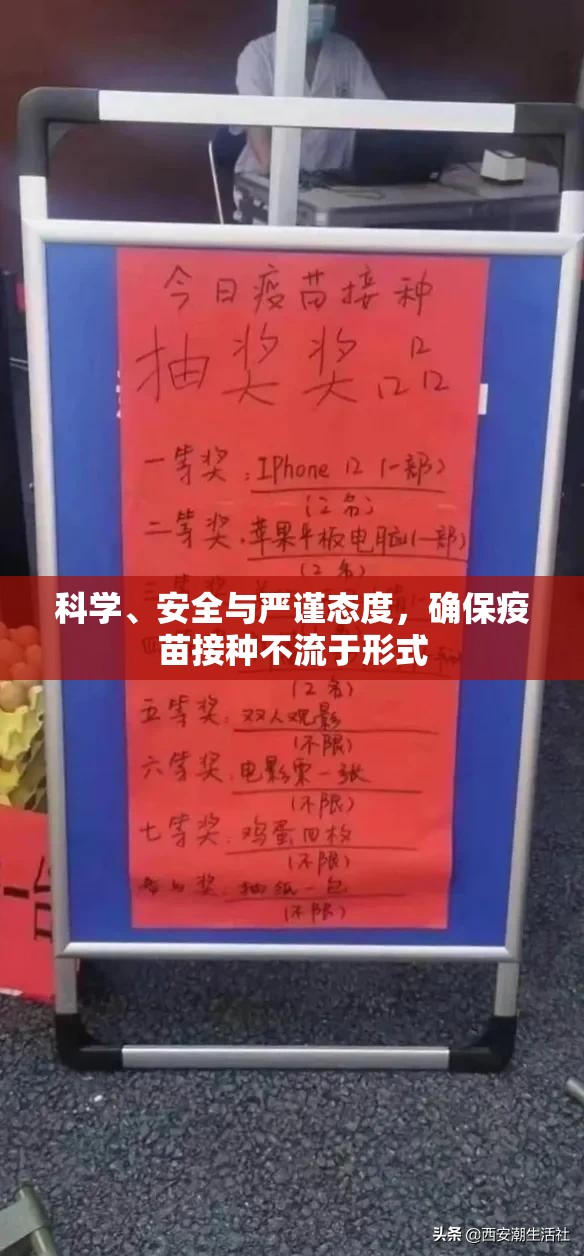 今日疫苗接种
抽奖奖品
一等奖：IPhone 12（一部）
（2名）
二等奖．苹果平板电脑（一部）
（2名）
科学、安全与严谨态度，确保疫
苗接种不流于形式
（2名）
五等奖：双人观影
（不限）
六等奖．电影票一张
（不限）
七等奖：鸡蛋四枚
（不限）
参与奖：抽纸一包
（不限）
头条 @西安潮生活社